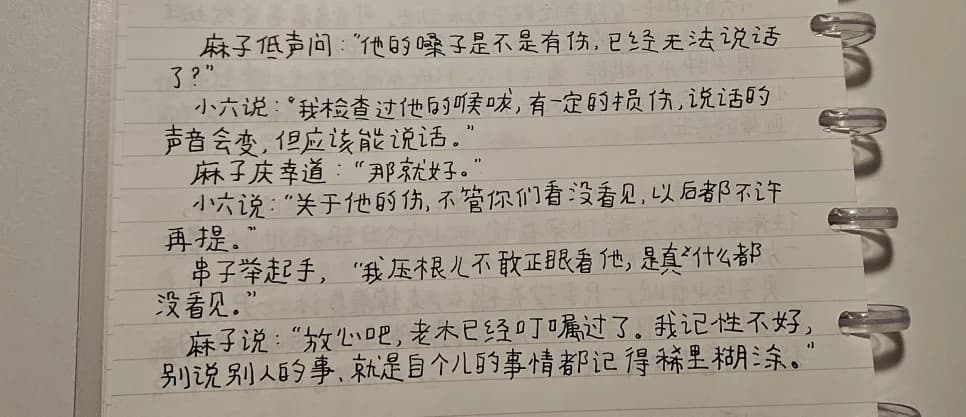 麻子低声问：“他的嗓子是不是有伤，已经无法说话
了？”
小六说：“我检查过他的喉咙，有一定的损伤，说话的
声音会变，但应该能说话。”
麻子庆幸道：“那就好。”
小六说：“关于他的伤，不管你们看没看见，以后都不许
再提。”
串子举起手，“我压根儿不敢正眼看他，是真什么都
没看见。”
麻子说：“放心吧，老木已经叮嘱过了。我记性不好，
别说别人的事、就是自个儿的事情都记得稀里糊涂。”